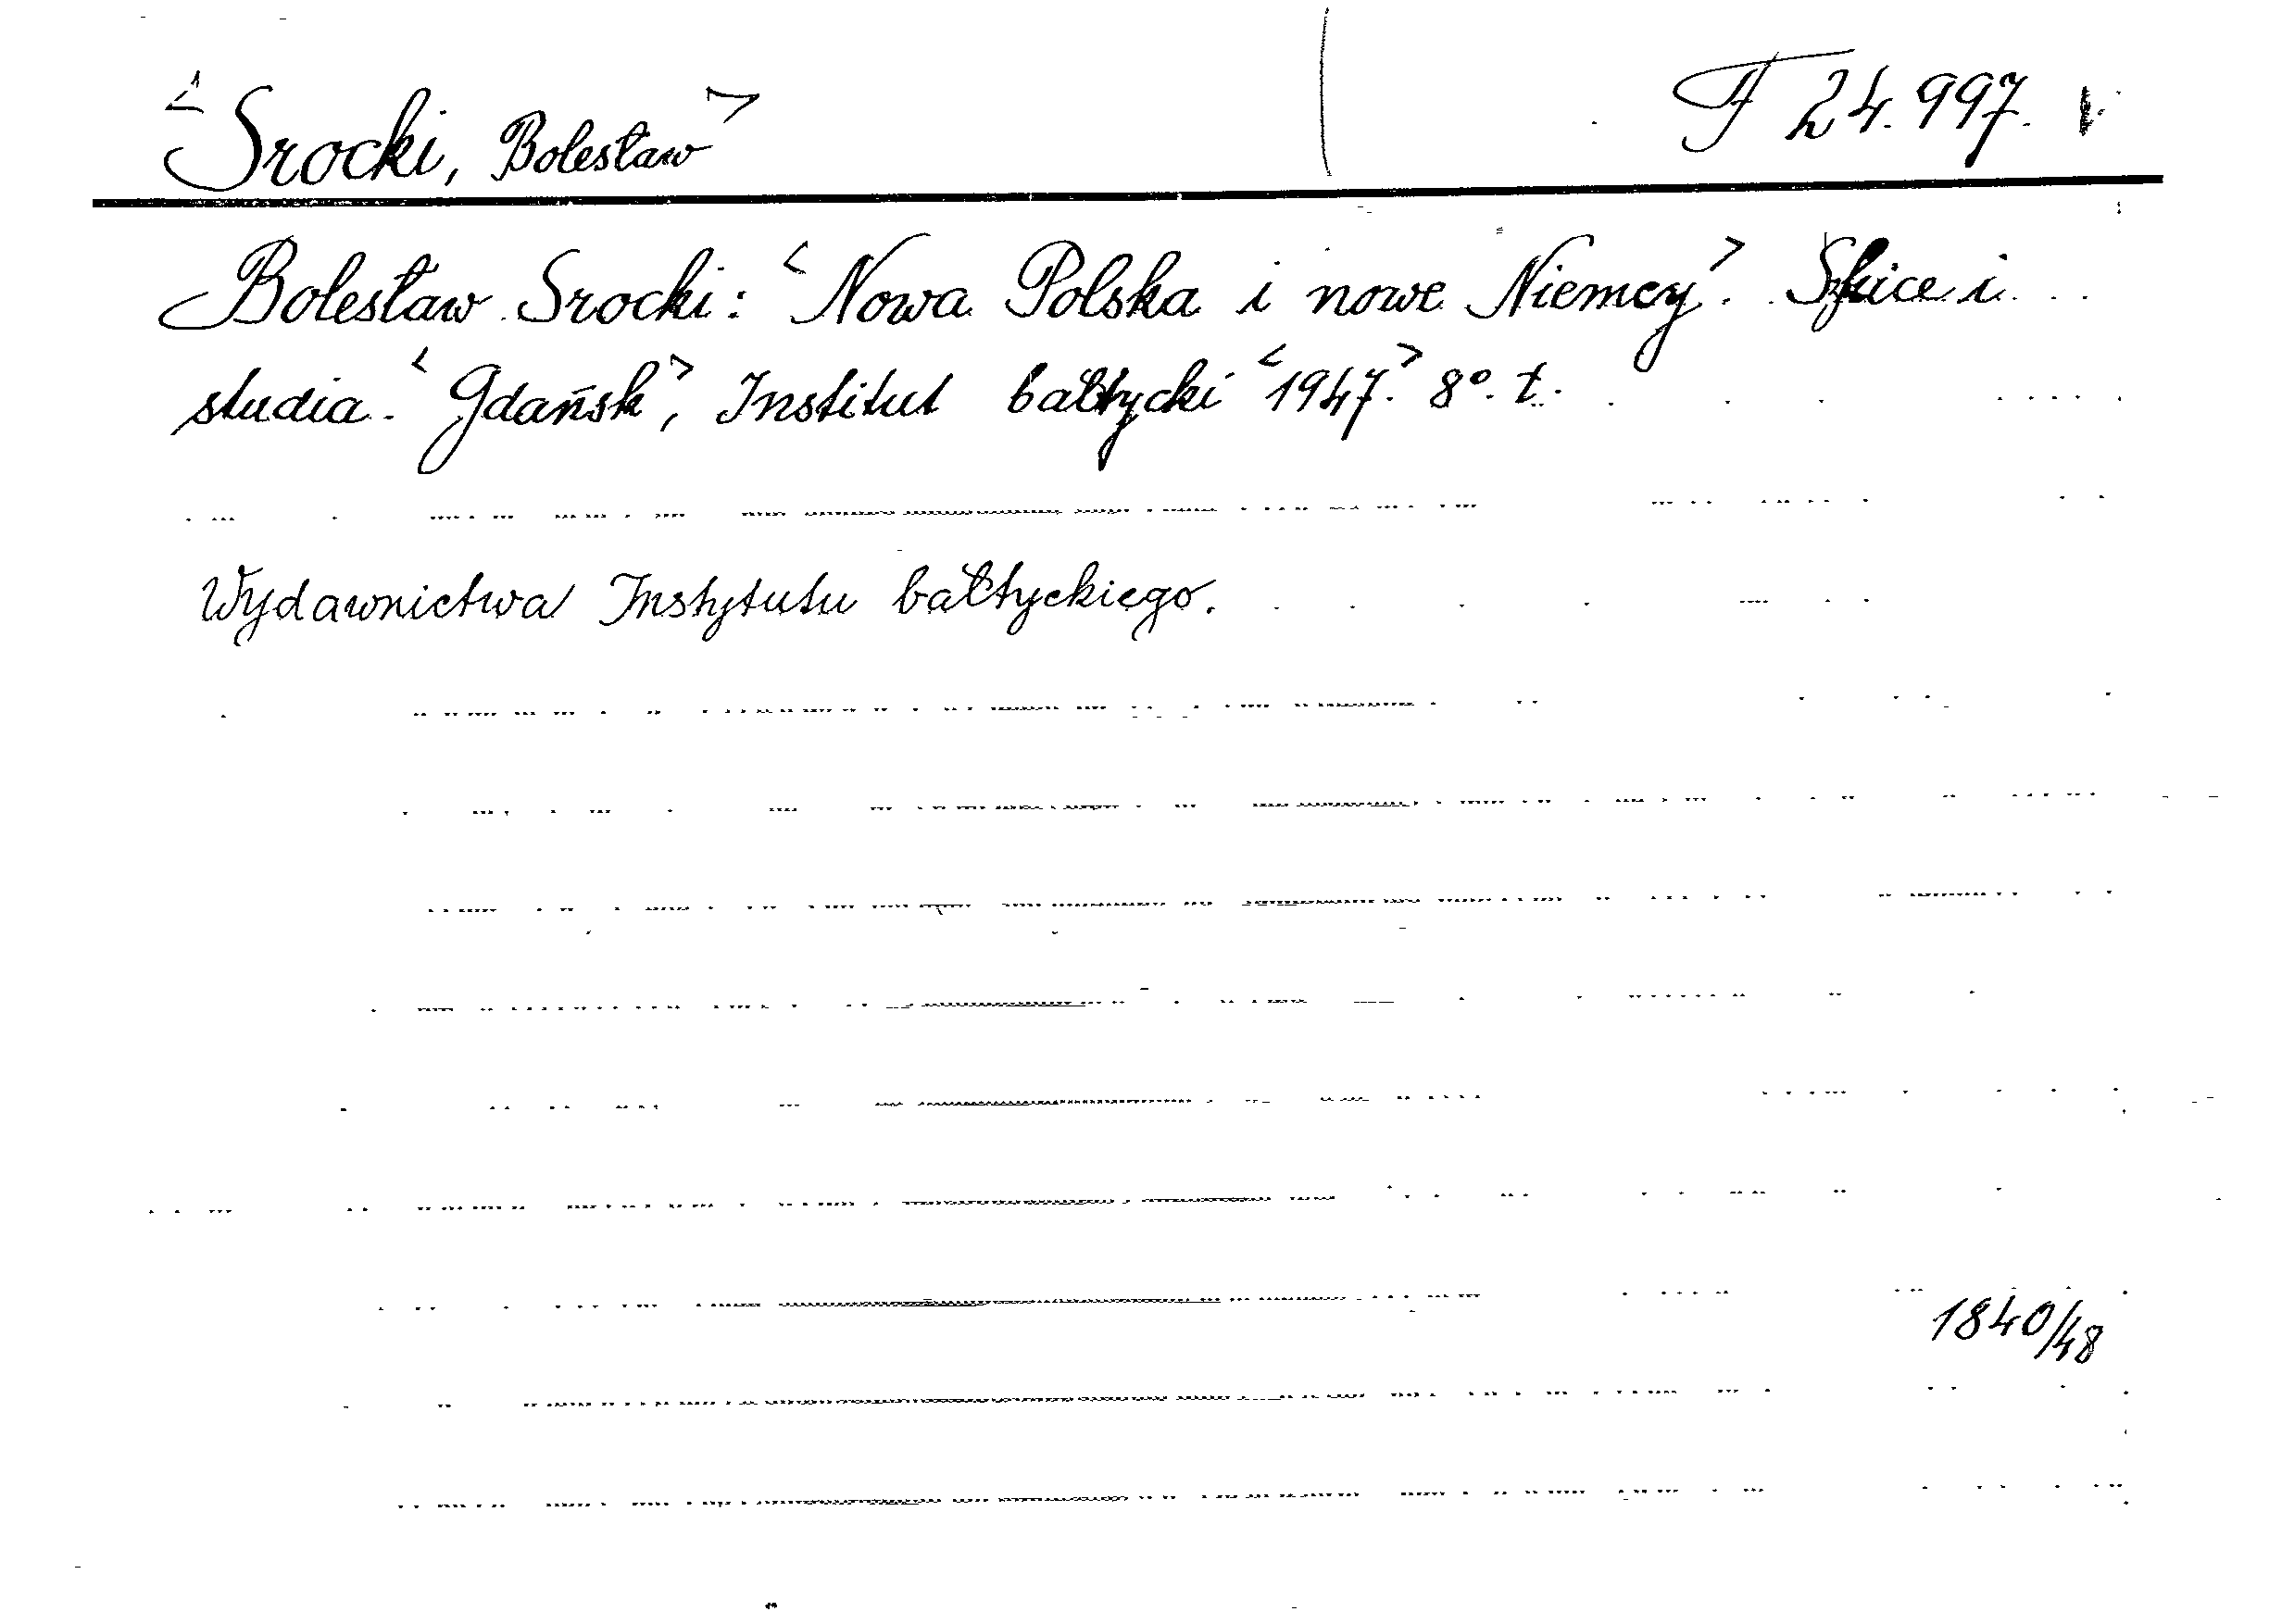 <Srocki, Bolesław> F 24.997.
Bolesław Srocki: <Nowa Polska i nowe Niemcy>. Szkice i
studia. <Gdańsk>, Institut bałtycki <1947.> 8°. t.
Wydawnictwa Instytutu bałtyckiego.
1840/48